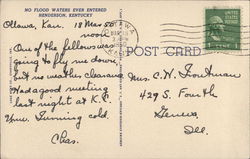 NO FLOOD WATERS EVER ENTERED
HENDERSON, KENTUCKY
Ottawa, Kan. 18 Mar 50
noon
One of the fellows was
going to fly me down
but no weather clearance
Had a good meeting
last night at K.C.
Turning cold.
Chas.
POST CARD
Mrs. C. W.
429 S. Fourth
Geneva,
Ill.